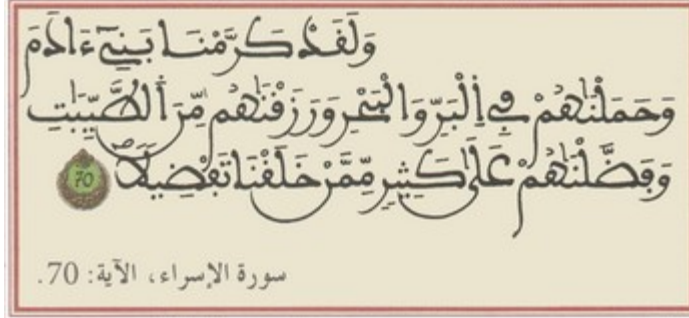 وَلَقَدْ كَرَّمْنَا بَنِےٓ ءَادَمَ
وَحَمَلْنَٰهُمْ فِے اِ۬لْبَرِّ وَالْبَحْرِ وَرَزَقْنَٰهُم مِّنَ اَ۬لطَّيِّبَٰتِ
وَفَضَّلْنَٰهُمْ عَلَىٰ كَثِيرٍ مِّمَّنْ خَلَقْنَا تَفْضِيلًا 70
سورة الإسراء، الآية: 70.